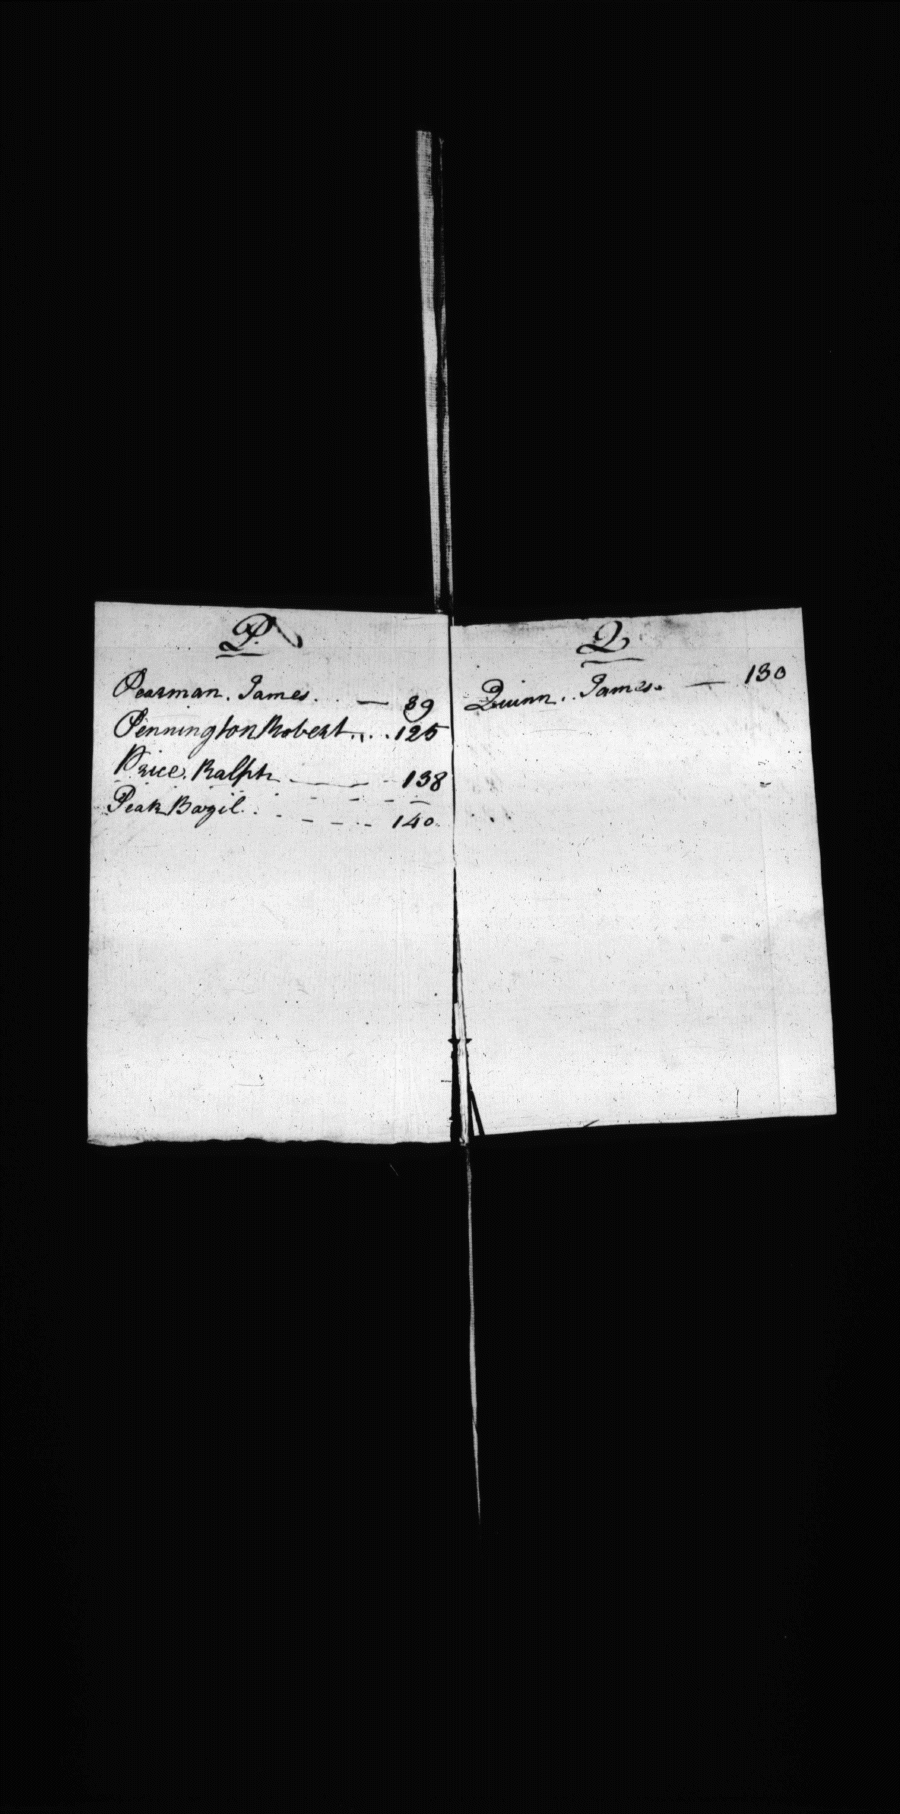 P.
Pearman. James. . . — 89
Pennington Robert. . . . 125
Price. Ralph — 138
Peak Bazil . . - - - - 140
Q
Quinn. . James. — 130